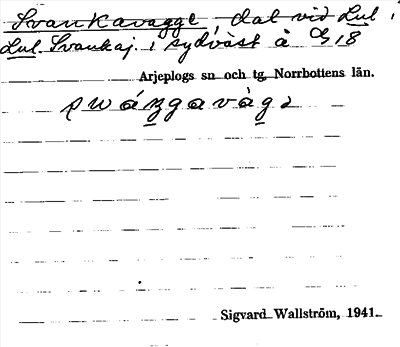 Svankavagge, dal vid Lul.
Lul. Svankaj. i sydväst å G, 18
Arjeplogs sn och tg, Norrbottens län.
Sigvard Wallström, 1941.